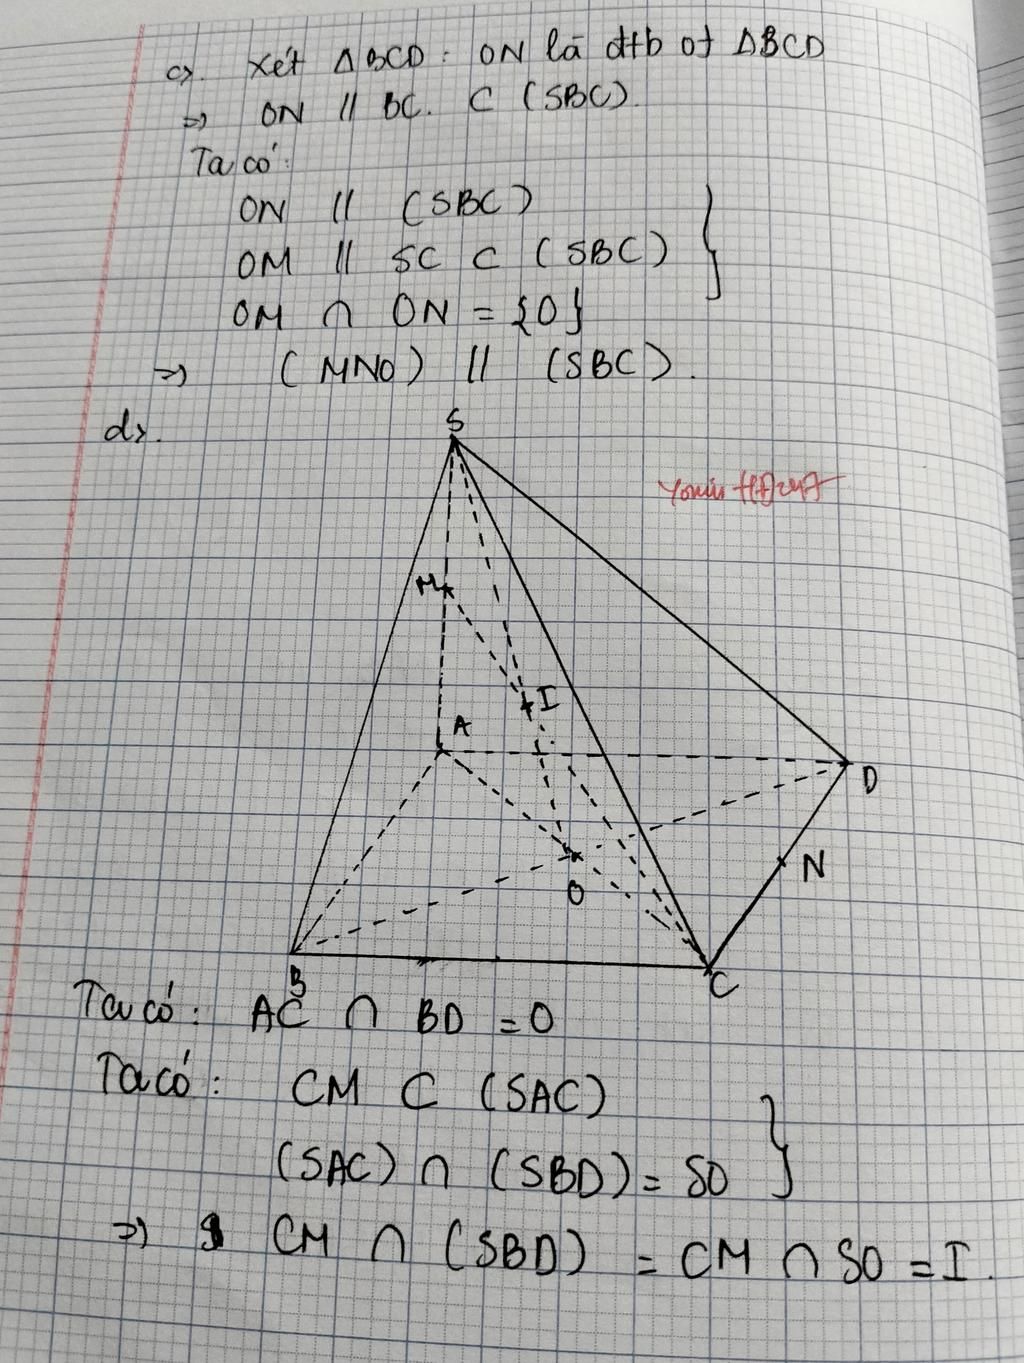 c). Xét ΔBCD: ON là đtb of ΔBCD
=> ON // BC. ⊂ (SBC).
Ta có:
ON // (SBC)
OM // SC ⊂ (SBC) }
OM ∩ ON = {O}
=> (MNO) // (SBC).
d).
S
M
I
A
D
N
O
B
C
Ta có: AC ∩ BD = O
Ta có: CM ⊂ (SAC)
(SAC) ∩ (SBD) = SO }
=> CM ∩ (SBD) = CM ∩ SO = I.